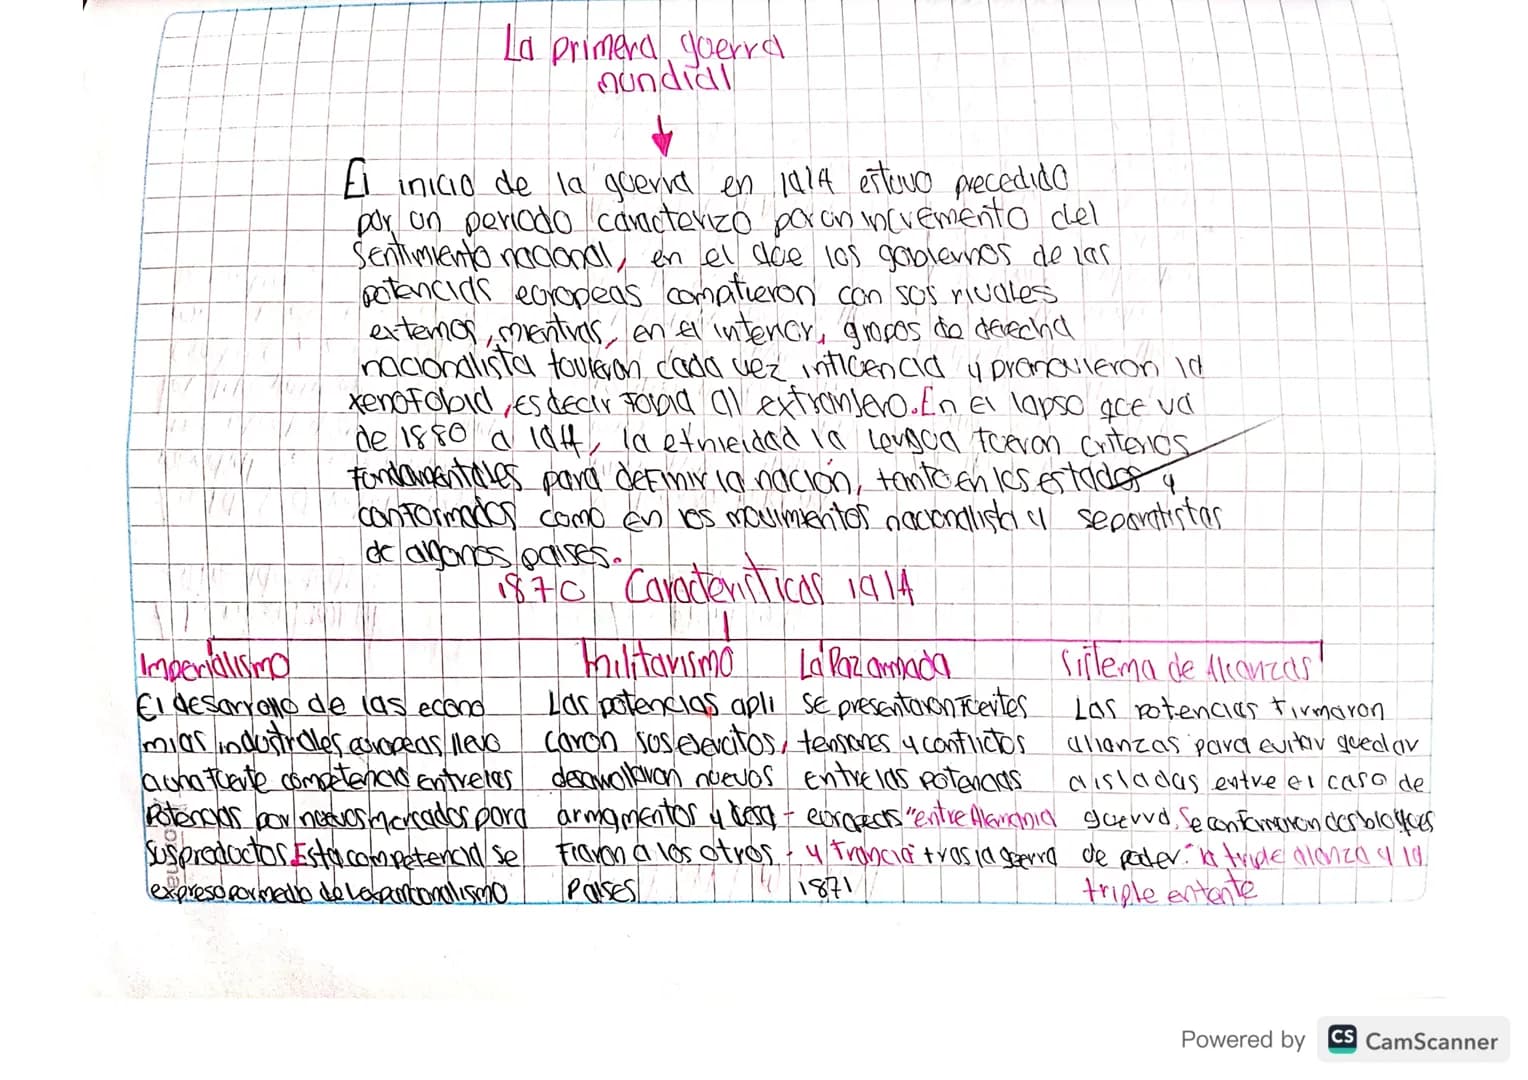 La primera guerra
mundial
El inicio de la guerra en 1914 estuvo precedido
por un periodo caracterizo por un incremento del
Sentimiento nacional, en el que los gobiernos de las
potencias europeas comatieron con sus rivales
externos, mientras, en el interior, grupos de derecha
nacionalista tuvieron cada vez influencia y promovieron la
xenofobia, es decir fobia al extranjero. En el lapso que va
de 1880 a 1914, la etnicidad la lengua fueron criterios
fundamentales para definir la nación, tanto en los estados y
conformados como en los movimientos nacionalista y separatistas
de algunos paises.
1870 Caracteristicas 1914
Imperialismo
El desarrollo de las econo
mias industriales europeas llevo
a una fuerte competencia entre las
Potencias por nuevos mercados para
Sus productos Esta competencia se
expreso por medio de
Militarismo
Las potencias apli
caron sus ejercitos,
desarrollaron nuevos
armamentos y desa-
fiaron a los otros
Paises
La Paz armada
Se presentaron fuertes
tensiones y conflictos
Entre las Potencias
europeas "entre Alemania
y francia tras la guerra
1871
Sistema de Alianzas
Las potencias firmaron
alianzas para evitar quedar
aisladas entre el caso de
guerra, Se conformaron dos bloques
de poder: la triple alianza y la
triple entente
Powered by CS CamScanner